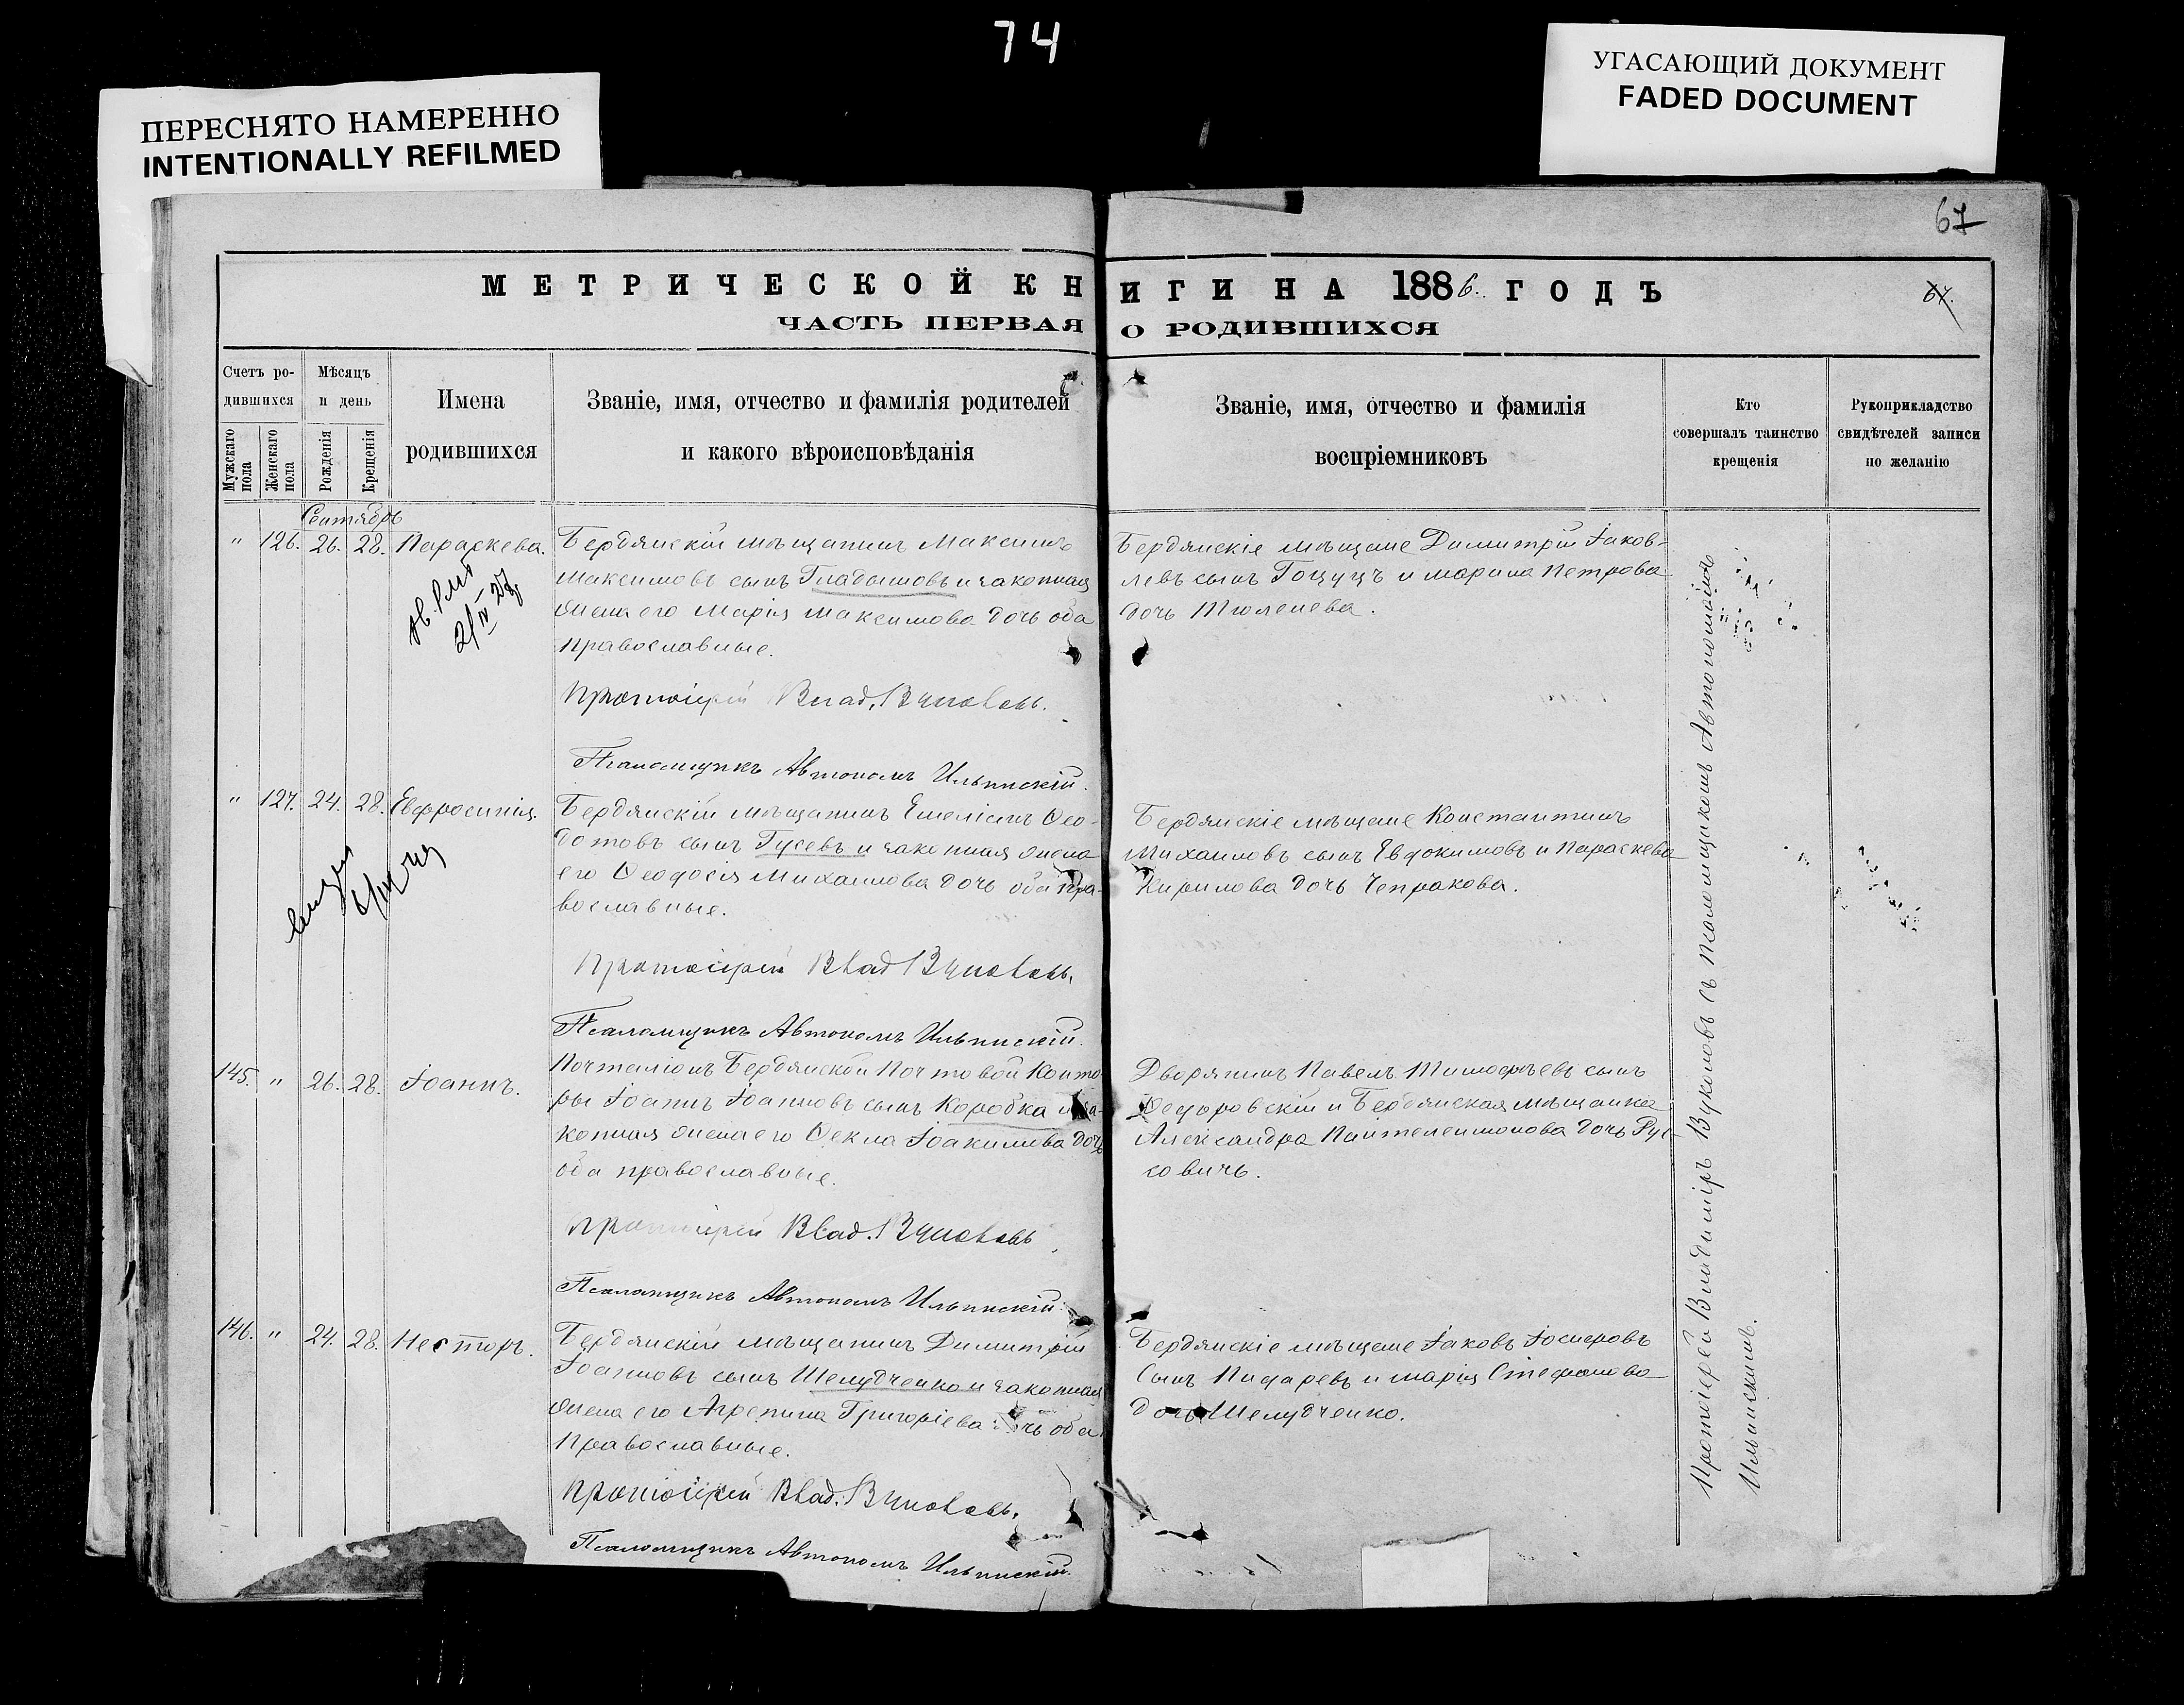 74
ПЕРЕСНЯТО НАМЕРЕННО
INTENTIONALLY REFILMED
УГАСАЮЩИЙ ДОКУМЕНТ
FADED DOCUMENT
67
МЕТРИЧЕСКОЙ КНИГИ НА 1886. ГОДЪ
67.
ЧАСТЬ ПЕРВАЯ О РОДИВШИХСЯ
Счетъ ро-
дившихся
Мужскаго пола
Женскаго пола
Мѣсяцъ
и день
Рожденія
Крещенія
Имена
родившихся
Званіе, имя, отчество и фамилія родителей
и какого вѣроисповѣданія
Званіе, имя, отчество и фамилія
воспріемниковъ
Кто
совершалъ таинство
крещенія
Рукоприкладство
свидѣтелей записи
по желанію
Сентябрь
" 126. 26. 28. Параскева.
Бердянскій мѣщанинъ Максимъ
Максимовъ сынъ Гладышовъ и законная
жена его Марія Максимова дочь оба
православные.
Протоіерей Влад. Вуколовъ.
Псаломщикъ Автономъ Ильинскій.
Бердянскіе мѣщане Димитрій Іаков-
левъ сынъ Гоцуцъ и Марина Петрова
дочь Тюленева.
" 127. 24. 28. Евфросинія.
Бердянскій мѣщанинъ Емеліанъ Ѳео-
дотовъ сынъ Гусевъ и законная жена
его Ѳеодосія Михаилова дочь оба пра-
вославные.
Протоіерей Влад Вуколовъ.
Псаломщикъ Автономъ Ильинскій.
Бердянскіе мѣщане Константинъ
Михаиловъ сынъ Евдокимовъ и Параскева
Кирилова дочь Чепракова.
145. " 26. 28. Іоаннъ.
Почталіонъ Бердянской Почтовой Конто
ры Іоаннъ Іоанновъ сынъ Коробка и за-
конная жена его Ѳекла Іоакимова дочь
оба православные.
Протоіерей Влад. Вуколовъ
Псаломщикъ Автономъ Ильинскій.
Дворянинъ Павелъ Тимофѣевъ сынъ
Ѳедоровскій и Бердянская мѣщанка
Александра Пантелеимонова дочь Рус-
ковичъ.
146. " 24. 28. Несторъ.
Бердянскій мѣщанинъ Димитрій
Іоанновъ сынъ Шелудченко и законная
жена его Агрепина Григоріева дочь оба
православные.
Протоіерей Влад. Вуколовъ.
Псаломщикъ Автономъ Ильинскій.
Бердянскіе мѣщане Іаковъ Іосифовъ
сынъ Пидаревъ и Марія Стефанова
дочь Шелудченко.
Протоіерей Владиміръ Вуколовъ съ псаломщикомъ Автономомъ
Ильинскимъ.